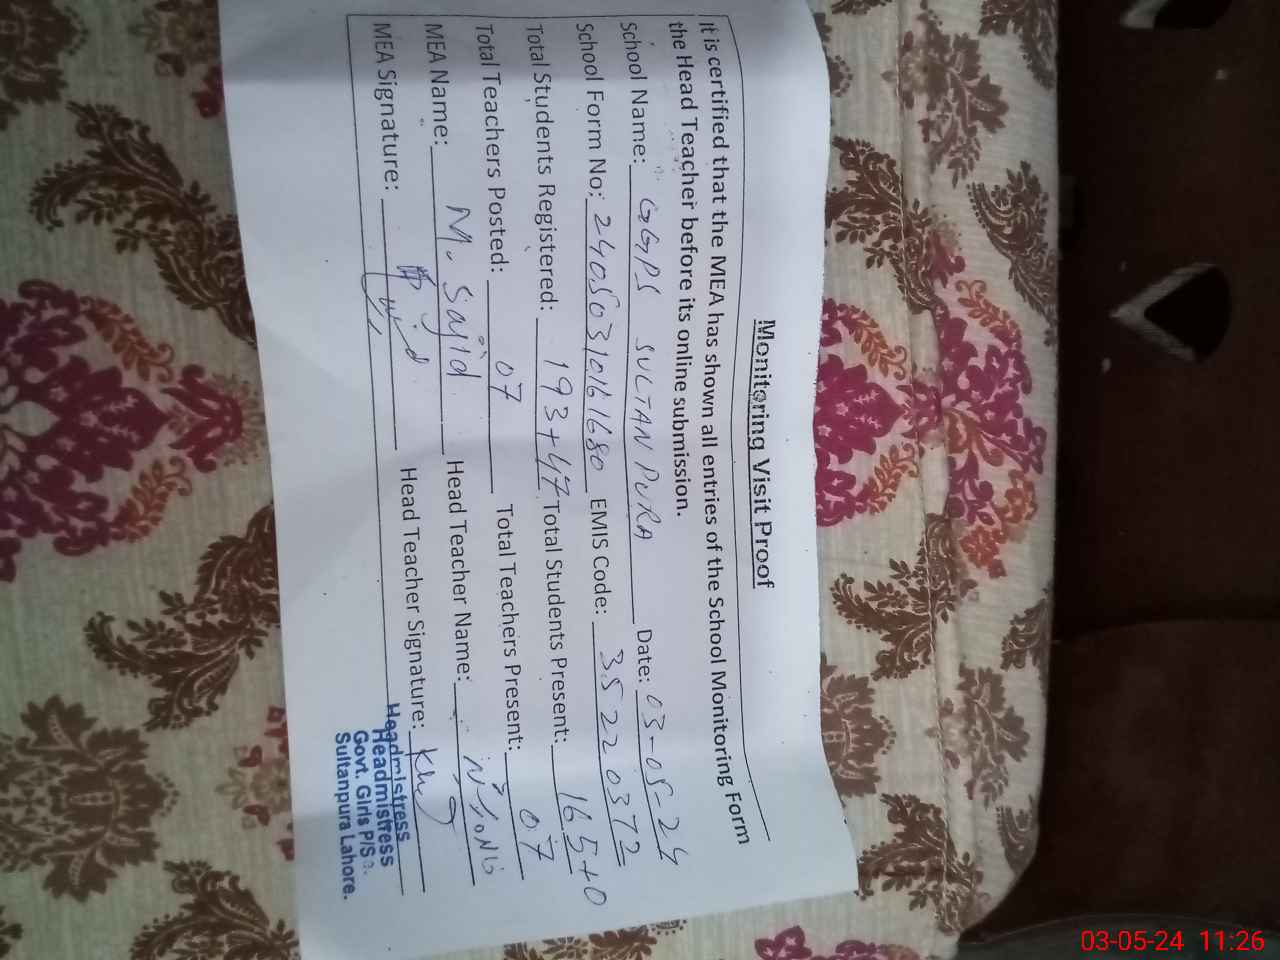 Monitoring Visit Proof
It is certified that the MEA has shown all entries of the School Monitoring Form
the Head Teacher before its online submission.
School Name: GGPS SULTAN PURA Date: 03-05-24
School Form No: 2405031016 1680 EMIS Code: 35220372
Total Students Registered: 193+47 Total Students Present: 165+0
Total Teachers Posted: 07 Total Teachers Present: 07
MEA Name: M. Sajid Head Teacher Name:
MEA Signature: Head Teacher Signature:
Headmistress
Headmistress
Govt. Girls P/S
Sultanpura Lahore.
03-05-24 11:26